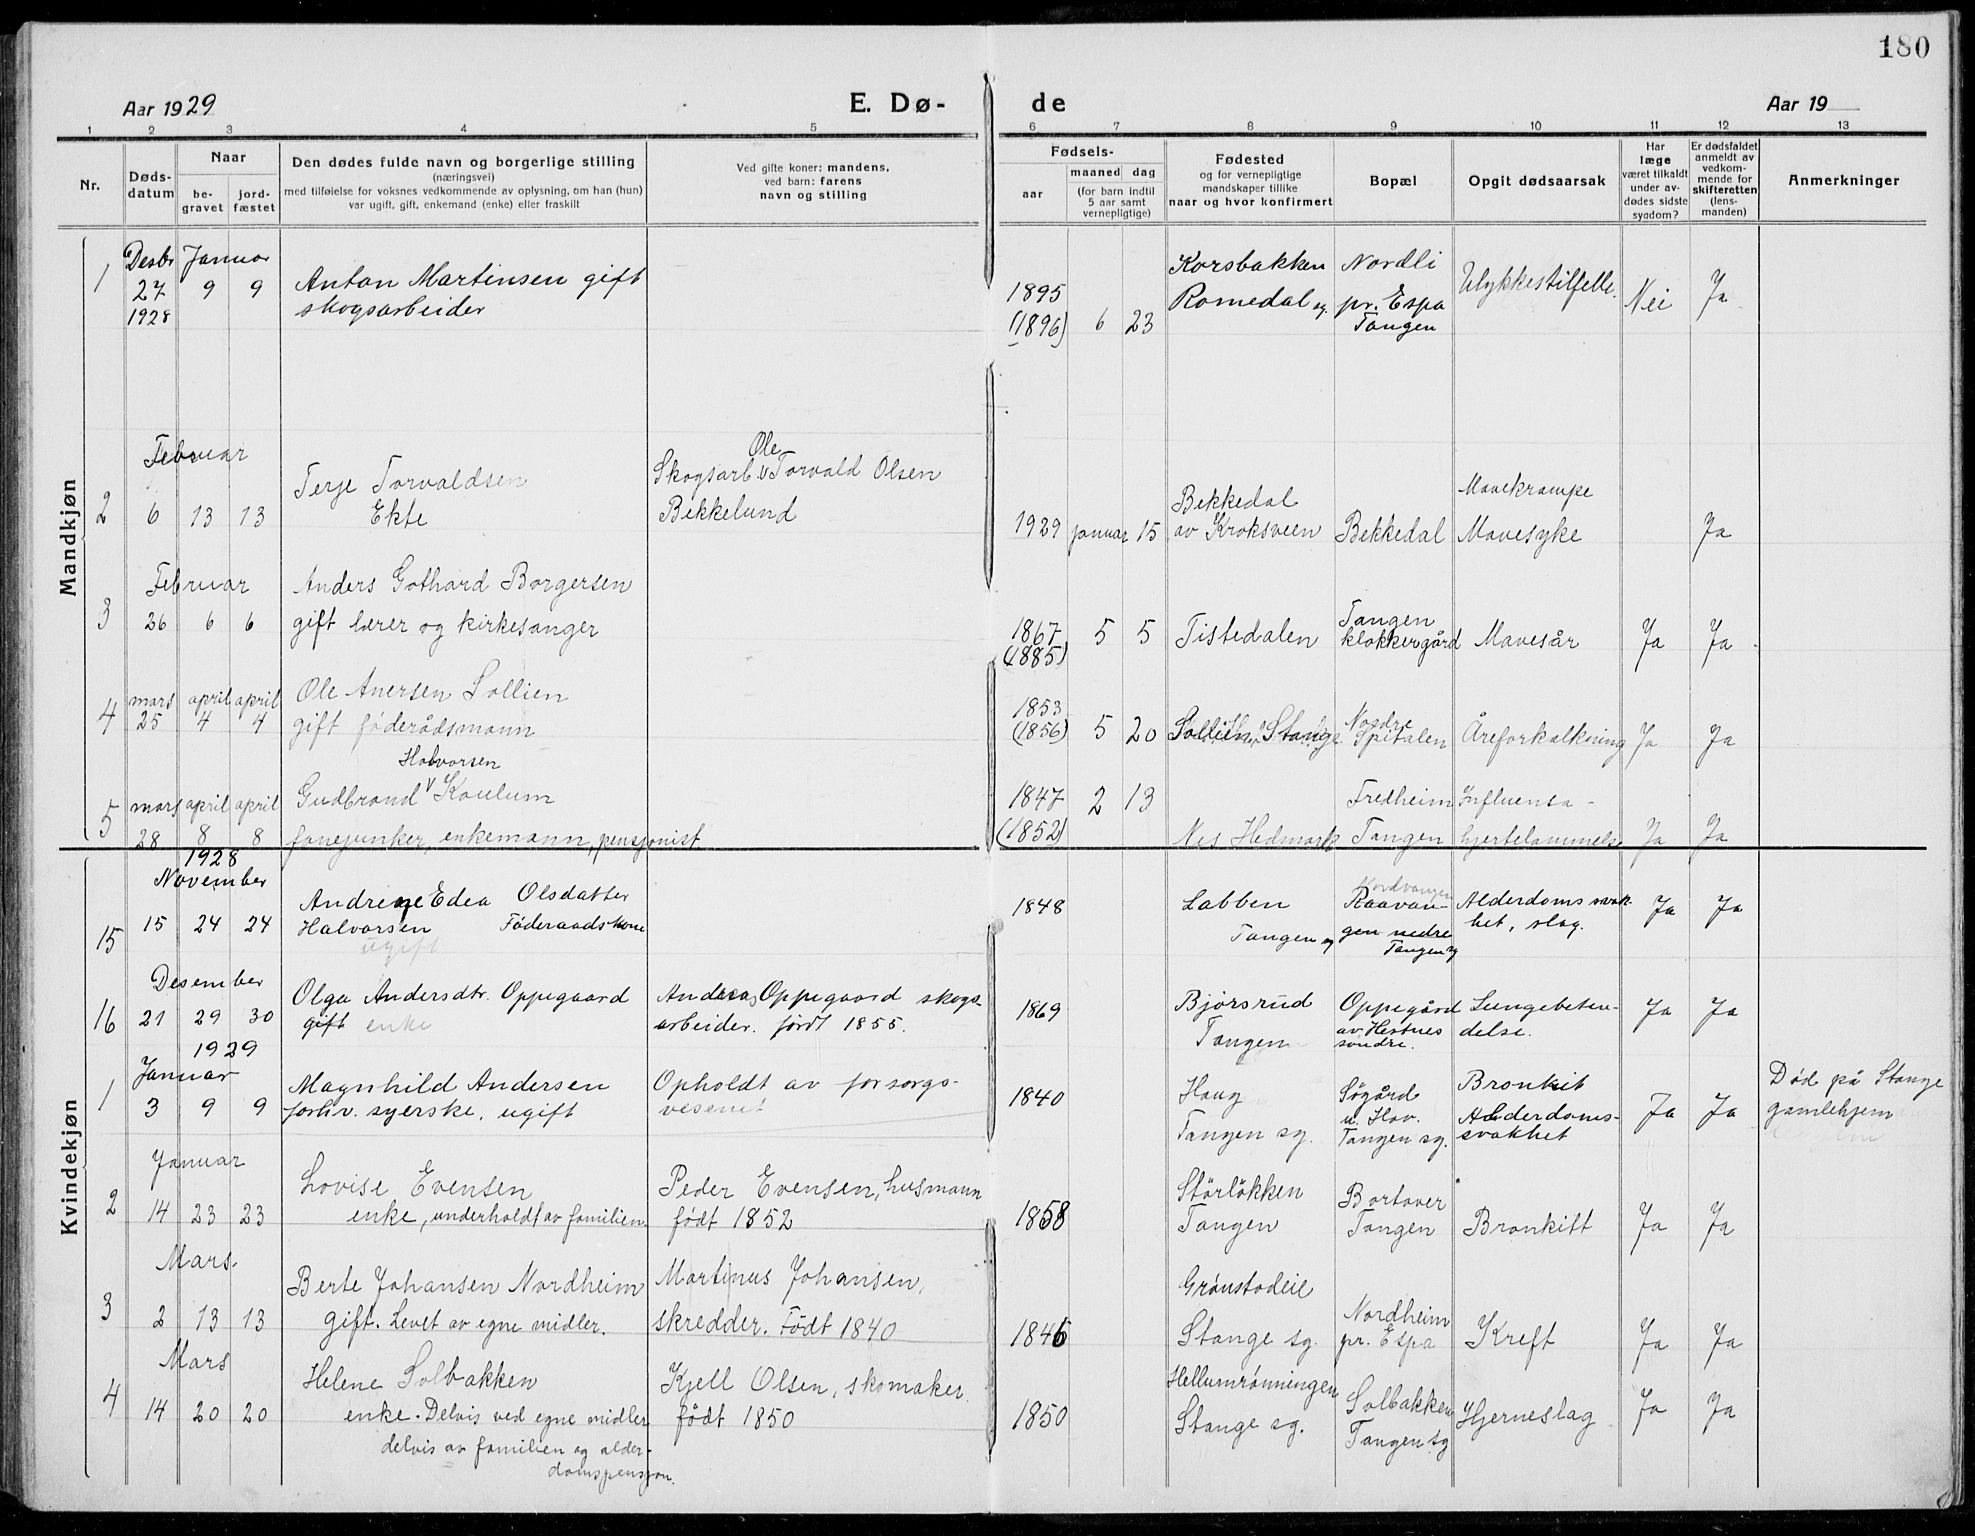 180
Aar 1929
E. Dø-
de
Aar 19
1 2 3 4 5 6 7 8 9 10 11 12 13
Nr.
Døds-
datum
Naar
be-
gravet
jord-
fæstet
Den dødes fulde navn og borgerlige stilling
(næringsvei)
med tilføielse for voksnes vedkommende av oplysning, om han (hun)
var ugift, gift, enkemand (enke) eller fraskilt
Ved gifte koner: mandens,
ved barn: farens
navn og stilling
Fødsels-
aar
maaned dag
(for barn indtil
5 aar samt
vernepligtige)
Fødested
og for vernepligtige
mandskaper tillike
naar og hvor konfirmert
Bopæl
Opgit dødsaarsak
Har
læge
været tilkaldt
under av-
dødes sidste
sygdom?
Er dødsfaldet
anmeldt av
vedkom-
mende for
skifteretten
(lens-
manden)
Anmerkninger
Mandkjøn
1
Desbr Januar
27 9 9
1928
Anton Martinsen gift
skogsarbeider
1895
(1896) 6 23
Korsbakken
Romedal sg.
Nordli
pr. Espa
Tangen
Ulykkestilfelle.
Nei
Ja
2
Februar
6 13 13
Terje Torvaldsen
Ekte
Ole
Skogsarb. V Torvald Olsen
Bekkelund
1929 januar 15
Bekkedal
av Kroksveen
Bekkedal
Mavekrampe
Mavesyke
Ja
3
Februar
26 6 6
Anders Gothard Borgersen
gift lærer og kirkesanger
1867 5 5
(1885)
Tistedalen
Tangen
klokkergård
Mavesår
Ja
Ja
4
mars april april
25 4 4
Ole Anersen Sollien
gift föderådsmann
1853
(1856) 5 20
Sollien, Stange
Nordre
Spitalen
Åreforkalkning
Ja
Ja
5
mars april april
28 8 8
Halvorsen
Gudbrand V Koulum
fanejunker, enkemann, pensjonist
1847 2 13
(1852)
Nes Hedmark
Fredheim
Tangen
Influensa -
hjertelammelse
Ja
Ja
Kvindekjøn
15
1928
November
15 24 24
Andrine Edea Olsdatter
Halvorsen Föderaadskone
ugift
1848
Labben
Tangen sg
Nordvangen
Raavan-
gen nedre
Tangen sg
Alderdomssvak-
het, slag.
Ja
Ja
16
Desember
21 29 30
Olga Andersdtr. Oppegaard
gift enke
Andreas Oppegaard skogs-
arbeider. født 1855.
1869
Bjørsrud
Tangen
Oppegård
av Hestnes
søndre.
Lungebeten-
delse.
Ja
Ja
1
1929
Januar
3 9 9
Magnhild Andersen
forhv. syerske, ugift
Opholdt av forsorgs-
vesenet
1840
Haug
Tangen sg.
Sögård
u. Hov.
Tangen sg.
Bronkit
Alderdoms-
svakhet
Ja
Ja
Död på Stange
gamlehjem
2
Januar
14 23 23
Lovise Evensen
enke, underholdt av familien.
Peder Evensen, husmann
født 1852
1858
Störlökken
Tangen
Bortover
Tangen
Bronkitt
Ja
Ja
3
Mars.
2 13 13
Berte Johansen Nordheim
gift. Levet av egne midler.
Martinus Johansen,
skredder. Født 1840
1846
Grönstadeie
Stange sg.
Nordheim
pr. Espa
Kreft
Ja
Ja
4
Mars
14 20 20
Helene Solbakken
enke. Delvis ved egne midler
delvis av familien og alder-
domspensjon.
Kjell Olsen, skomaker.
født 1850
1850
Hellumrönningen
Stange sg.
Solbakken
Tangen sg
Hjerneslag
Ja
Ja